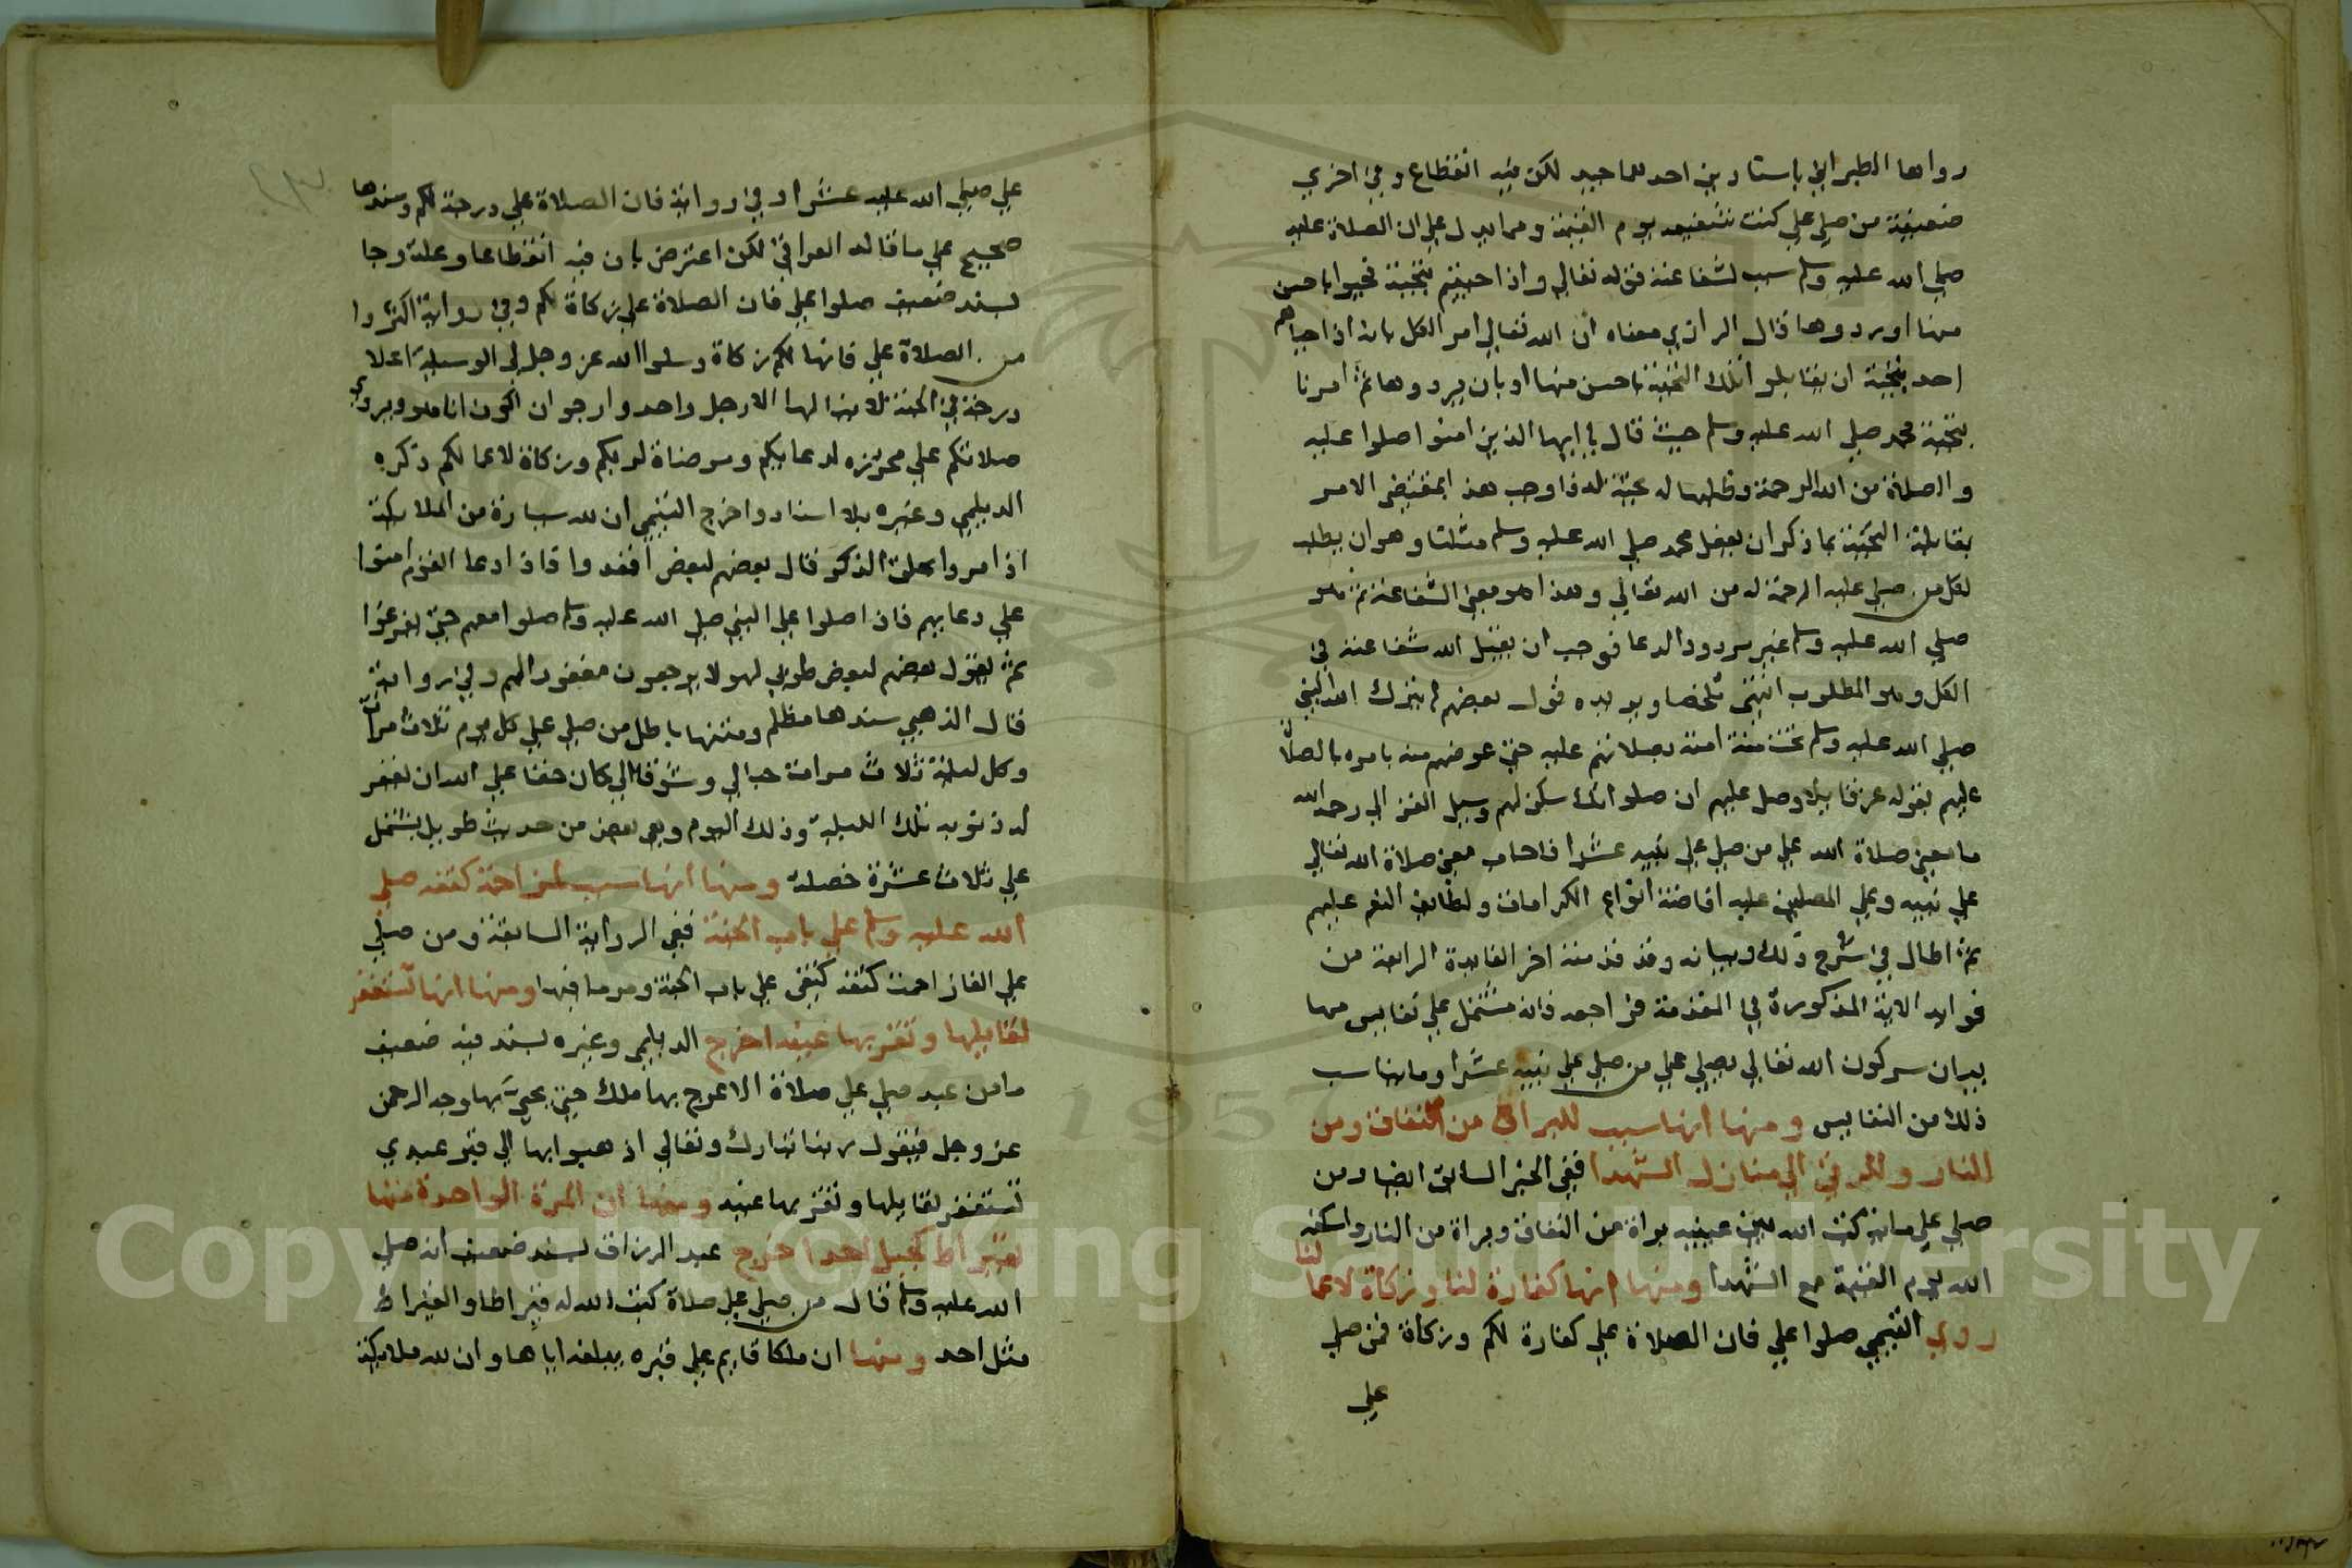 رواها الطبراني باسنادين احدهما جيد لكن فيه انقطاع وفي اخري
ضعيفة من صلي علي كنت شفيعه يوم القيمة ومما يدل علي ان الصلاة عليه
صلي الله عليه وسلم سبب لشفاعته قوله تعالي واذا حييتم بتحية فحيوا باحسن
منها او ردوها قال الرازي معناه ان الله تعالي امر الكل بانه اذا حياهم
احد بتحية ان يقابلوا تلك التحية باحسن منها او بان يردوها ثم امرنا
بتحية محمد صلي الله عليه وسلم حيث قال يا ايها الذين امنوا صلوا عليه
والصلاة من الله الرحمة وطلبها له تحية له فاوجب هذا بمقتضي الامر
بمقابلة التحية بما ذكر ان يفعل محمد صلي الله عليه وسلم مثلنا وهو ان يطلب
لكل من صلي عليه الرحمة له من الله تعالي وهذا هو معني الشفاعة ثم هو
صلي الله عليه وسلم غير مردود الدعا فوجب ان يقبل الله شفاعته في
الكل وهو المطلوب انتهي ملخصا ويويده قول بعضهم لم يترك الله النبي
صلي الله عليه وسلم تحت منة امته بصلاتهم عليه حتي عوضهم منه بامره بالصلاة
عليهم بقوله عز قايلا وصل عليهم ان صلواتك سكن لهم وسيل الفخر الي رحمة الله
ما معني صلاة الله علي من صلي علي نبيه عشرا فاجاب معني صلاة الله تعالي
علي نبيه وعلي المصلين عليه افاضة انواع الكرامات ولطايف النعم عليهم
ثم اطال في شرح ذلك وبيانه وقد قدمته اخر الفايدة الرابعة من
فوايد الاية المذكورة في المقدمة فراجعه فانه مشتمل علي نفايس منها
بيان سر كون الله تعالي يصلي علي من صلي علي نبيه عشرا وما يناسب
ذلك من النفايس ومنها انها سبب للبراة من النفاق ومن
النار والمرقي الي منازل الشهدا ففي الخبر السابق ايضا ومن
صلي علي ماية كتب الله بين عينيه براة من النفاق وبراة من النار واسكنه
الله يوم القيمة مع الشهدا ومنها انها كفارة لنا وزكاة لاعمالنا
روي التيمي صلوا علي فان الصلاة علي كفارة لكم وزكاة فمن صلي
علي
علي صلي الله عليه عشرا وفي رواية فان الصلاة علي درجة لكم وسندها
صحيح علي ما قاله العراقي لكن اعترض بان فيه انقطاعا وعلة وجا
بسند ضعيف صلوا علي فان الصلاة علي زكاة لكم وفي رواية اكثروا
من الصلاة علي فانها لكم زكاة وسلوا الله عز وجل لي الوسيلة اعلا
درجة في الجنة لا ينالها الا رجل واحد وارجو ان اكون انا هو ويروي
صلاتكم علي محرزة لدعايكم ومرضاة لربكم وزكاة لاعمالكم ذكره
الديلمي وغيره بلا اسناد واخرج التيمي ان لله سيارة من الملايكة
اذا مروا بحلق الذكر قال بعضهم لبعض اقعدوا فاذا دعا القوم امنوا
علي دعايهم فاذا صلوا علي النبي صلي الله عليه وسلم صلوا معهم حتي يفرغوا
ثم يقول بعضهم لبعض طوبي لهولا يرجعون مغفورا لهم وفي رواية
قال الذهبي سندها مظلم ومتنها باطل من صلي علي كل يوم ثلاث مرات
وكل ليلة ثلاث مرات حبا لي وشوقا الي كان حقا علي الله ان يغفر
له ذنوبه تلك الليلة وذلك اليوم وهو بعض من حديث طويل يشتمل
علي ثلاث عشرة خصلة ومنها انها سبب لمزاحمة كتفه صلي
الله عليه وسلم علي باب الجنة ففي الرواية السابقة ومن صلي
علي الفا زاحمت كتفه كتفي علي باب الجنة ومر ما فيها ومنها انها تستغفر
لقايلها وتقر بها عينه اخرج الديلمي وغيره بسند فيه ضعيف
ما من عبد صلي علي صلاة الا عرج بها ملك حتي يحي بها وجه الرحمن
عز وجل فيقول ربنا تبارك وتعالي اذهبوا بها الي قبر عبدي
تستغفر لقايلها وتقر بها عينه ومنها ان المرة الواحدة منها
بقيراط كجبل احد اخرج عبد الرزاق بسند ضعيف انه صلي
الله عليه وسلم قال من صلي علي صلاة كتب الله له قيراطا والقيراط
مثل احد ومنها ان ملكا قايم علي قبره يبلغه اياها وان لله ملايكة